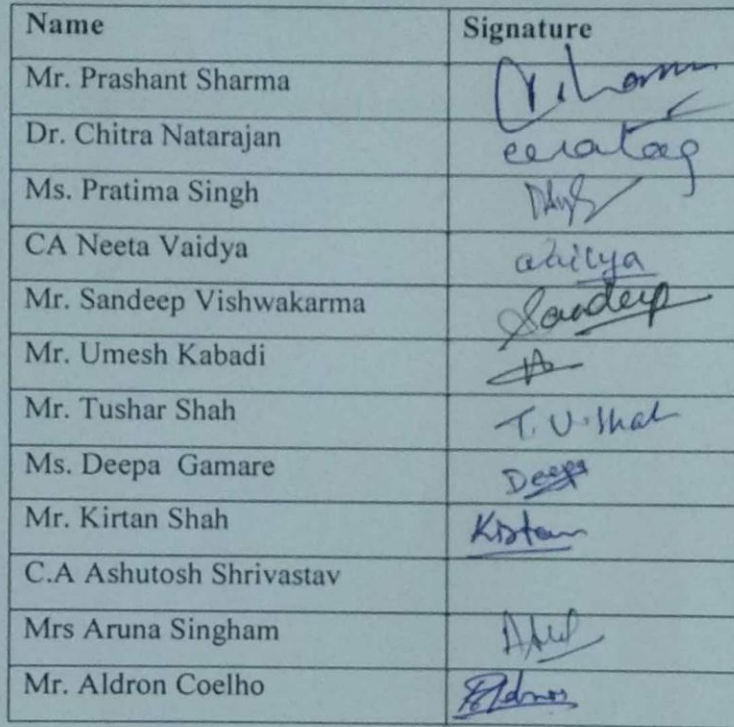 Name Signature
Mr. Prashant Sharma
Dr. Chitra Natarajan
Ms. Pratima Singh
CA Neeta Vaidya
Mr. Sandeep Vishwakarma Sandeep
Mr. Umesh Kabadi
Mr. Tushar Shah T. U. Shah
Ms. Deepa Gamare Deepa
Mr. Kirtan Shah Kirtan
C.A Ashutosh Shrivastav
Mrs Aruna Singham
Mr. Aldron Coelho